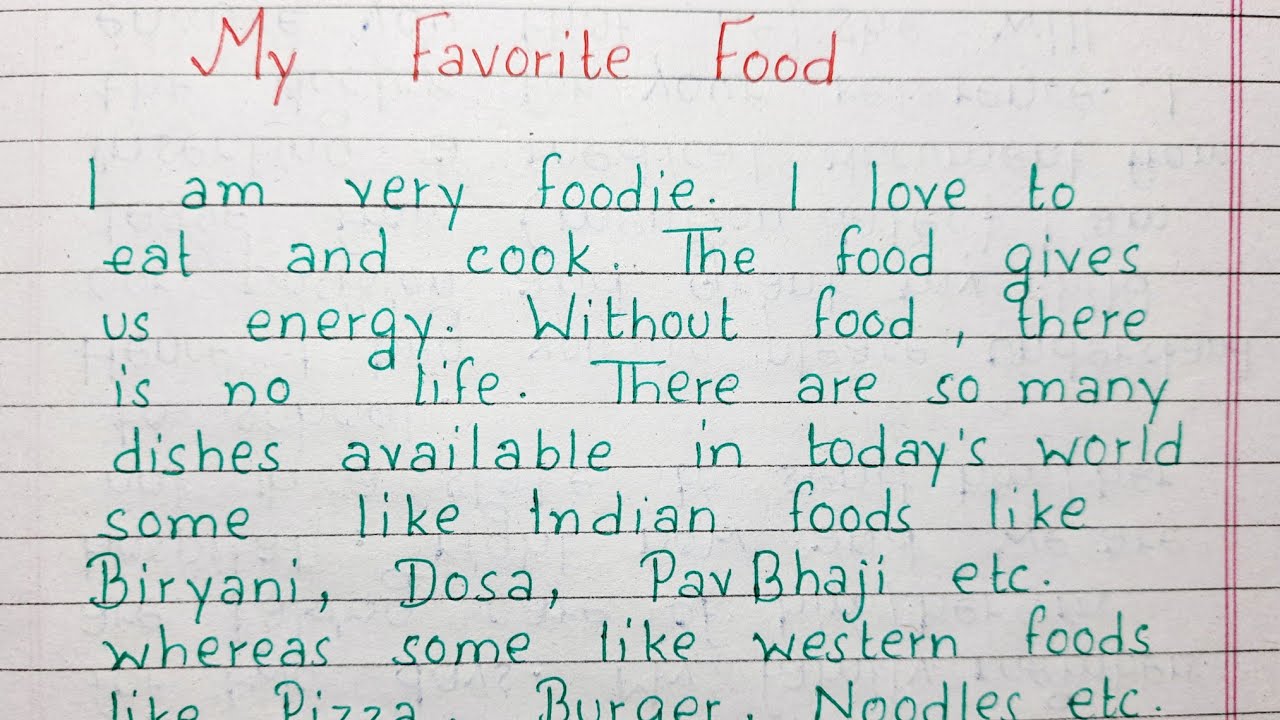 My Favorite Food
I am very foodie. I love to
eat and cook. The food gives
us energy. Without food, there
is no life. There are so many
dishes available in today's world
some like Indian foods like
Biryani, Dosa, Pav Bhaji etc.
whereas some like western foods
like Pizza, Burger, Noodles etc.